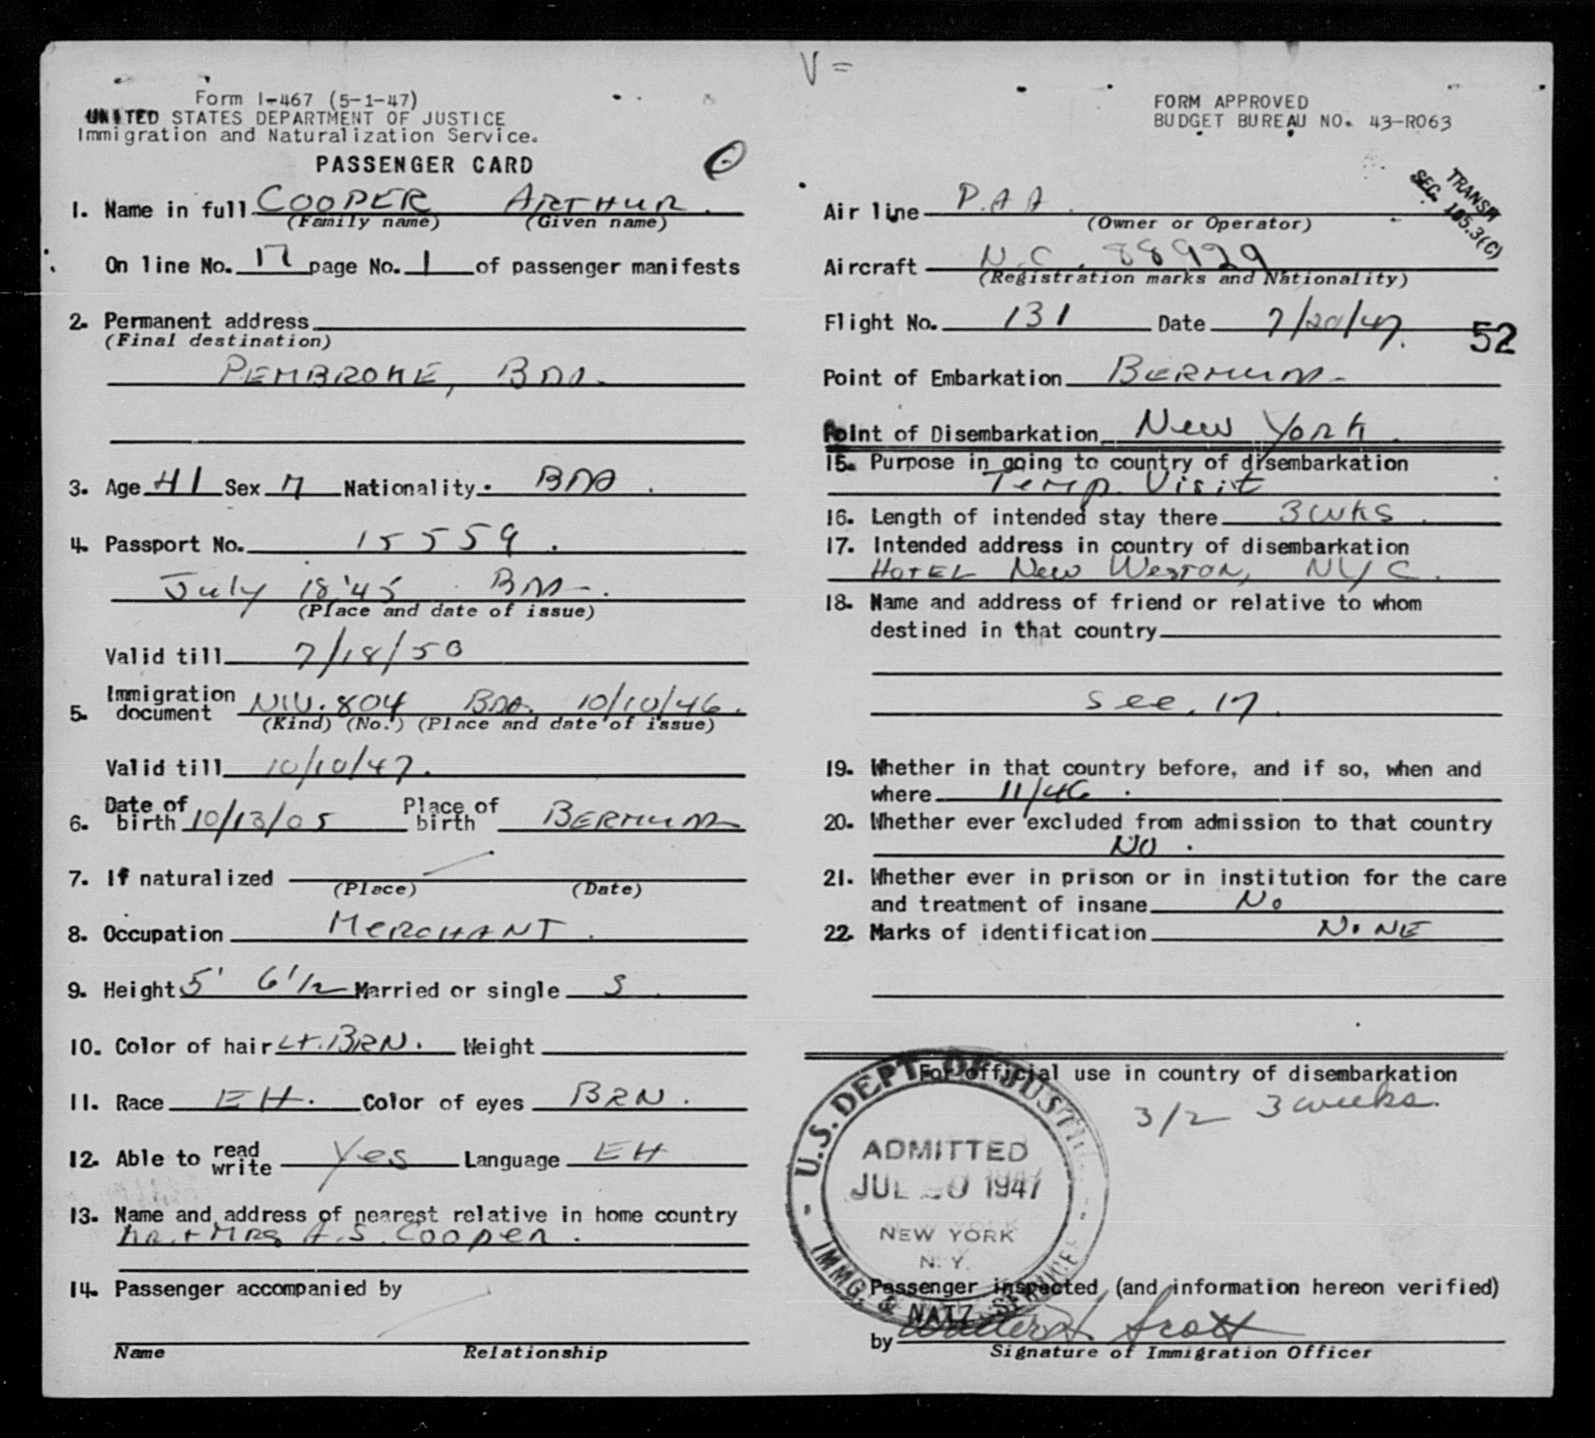 V =
Form I-467 (5-1-47)
UNITED STATES DEPARTMENT OF JUSTICE
Immigration and Naturalization Service.
PASSENGER CARD
1. Name in full COOPER ARTHUR.
(Family name) (Given name)
On line No. 17 page No. 1 of passenger manifests
2. Permanent address
(Final destination)
PEMBROKE, BDA.
3. Age 41 Sex M Nationality. BDA.
4. Passport No. 15559.
July 18'45 BDA.
(Place and date of issue)
Valid till 7/18/50
5. Immigration document NIV. 804 BDA. 10/10/46.
(Kind) (No.) (Place and date of issue)
Valid till 10/10/47.
6. Date of birth 10/13/05 Place of birth BERMUDA
7. If naturalized
(Place) (Date)
8. Occupation MERCHANT.
9. Height 5' 6 1/2 Married or single S.
10. Color of hair LT. BRN. Weight
11. Race EH. Color of eyes BRN.
12. Able to read write Yes Language EH
13. Name and address of nearest relative in home country
Mr. + Mrs A.S. Cooper.
14. Passenger accompanied by
Name Relationship
FORM APPROVED
BUDGET BUREAU NO. 43-R063
TRANSIT
SEC. 105.3(C)
Air line P.A.A.
(Owner or Operator)
Aircraft N.C. 88929
(Registration marks and Nationality)
Flight No. 131 Date 7/20/47.
52
Point of Embarkation BERMUDA
Point of Disembarkation New York.
15. Purpose in going to country of disembarkation
Temp. Visit
16. Length of intended stay there 3 WKS.
17. Intended address in country of disembarkation
HOTEL New Weston, NYC.
18. Name and address of friend or relative to whom
destined in that country
See. 17.
19. Whether in that country before, and if so, when and
where 11/46.
20. Whether ever excluded from admission to that country
NO.
21. Whether ever in prison or in institution for the care
and treatment of insane No
22. Marks of identification NONE
For official use in country of disembarkation
3/2 3 weeks.
U.S. DEPT. OF JUSTICE
ADMITTED
JUL 20 1947
NEW YORK
N.Y.
IMMG. & NATZ. SERVICE
Passenger inspected (and information hereon verified)
by Walter H. Scott
Signature of Immigration Officer